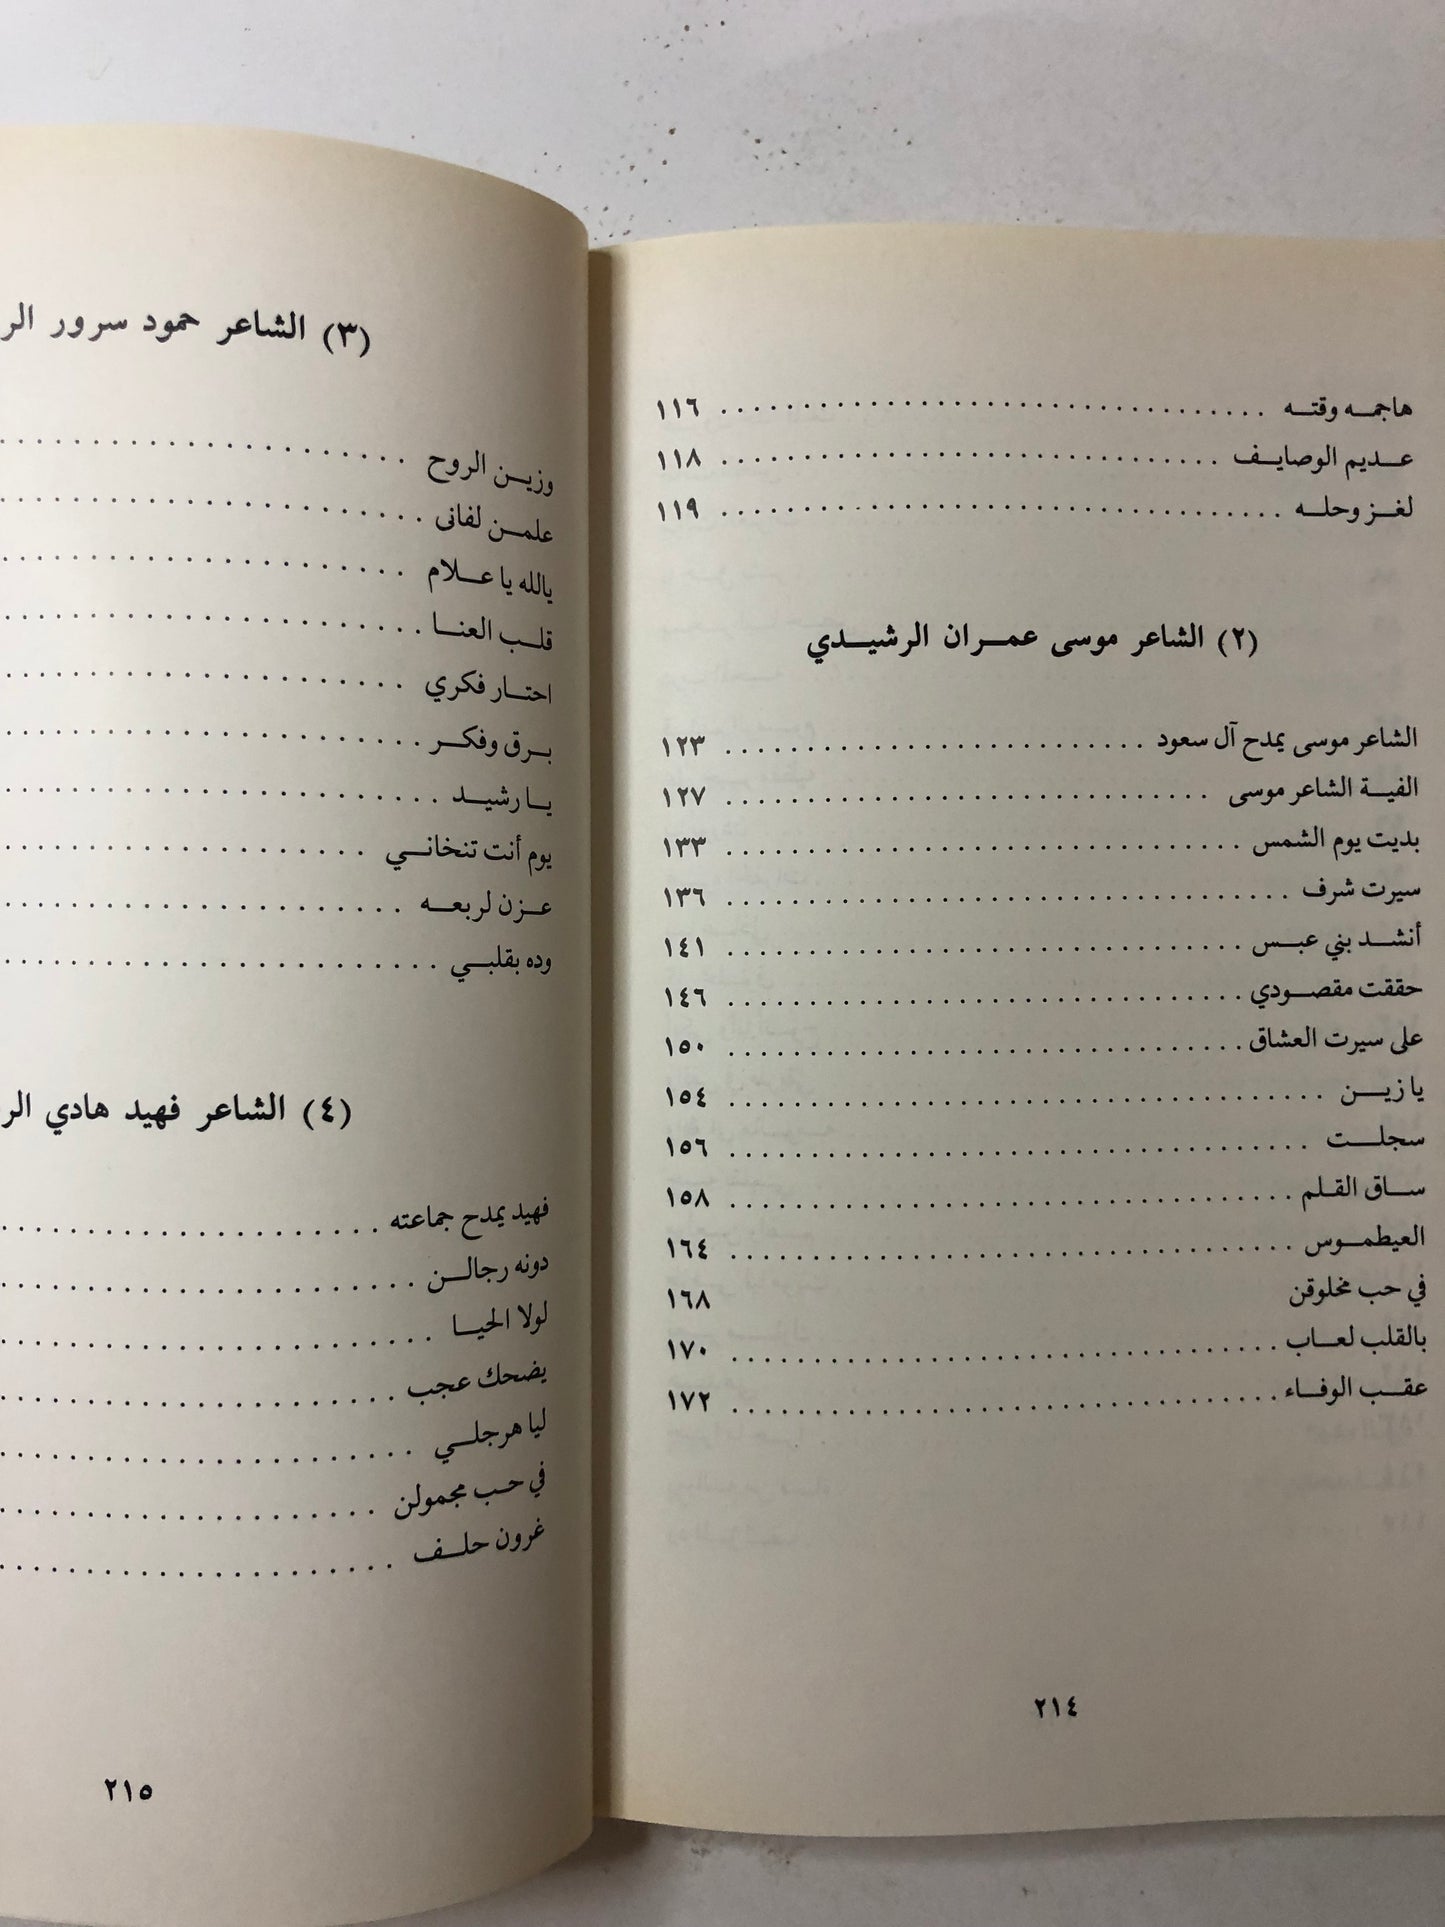 هاجمه وقته . . . . . . . . . . . . . . . . . . . . ١١٦
عديم الوصايف . . . . . . . . . . . . . . . . . . . . ١١٨
لغز وحله . . . . . . . . . . . . . . . . . . . . ١١٩
(٢) الشاعر موسى عمران الرشيدي
الشاعر موسى يمدح آل سعود . . . . . . . . . . . . . . . . . . . . ١٢٣
الفية الشاعر موسى . . . . . . . . . . . . . . . . . . . . ١٢٧
بديت يوم الشمس . . . . . . . . . . . . . . . . . . . . ١٣٣
سيرت شرف . . . . . . . . . . . . . . . . . . . . ١٣٦
أنشد بني عبس . . . . . . . . . . . . . . . . . . . . ١٤١
حققت مقصودي . . . . . . . . . . . . . . . . . . . . ١٤٦
على سيرت العشاق . . . . . . . . . . . . . . . . . . . . ١٥٠
يا زين . . . . . . . . . . . . . . . . . . . . ١٥٤
سجلت . . . . . . . . . . . . . . . . . . . . ١٥٦
ساق القلم . . . . . . . . . . . . . . . . . . . . ١٥٨
العيطموس . . . . . . . . . . . . . . . . . . . . ١٦٤
في حب مخلوقن ١٦٨
بالقلب لعاب . . . . . . . . . . . . . . . . . . . . ١٧٠
عقب الوفاء . . . . . . . . . . . . . . . . . . . . ١٧٢
٢١٤
(٣) الشاعر حمود سرور الر
وزين الروح . . . . . . . . . . . . . . . . . . . .
علمن لفانى . . . . . . . . . . . . . . . . . . . .
يالله يا علام . . . . . . . . . . . . . . . . . . . .
قلب العنا . . . . . . . . . . . . . . . . . . . .
احتار فكري . . . . . . . . . . . . . . . . . . . .
برق وفكر . . . . . . . . . . . . . . . . . . . .
يا رشيد . . . . . . . . . . . . . . . . . . . .
يوم أنت تنخاني . . . . . . . . . . . . . . . . . . . .
عزن لربعه . . . . . . . . . . . . . . . . . . . .
وده بقلبي . . . . . . . . . . . . . . . . . . . .
(٤) الشاعر فهيد هادي الر
فهيد يمدح جماعته . . . . . . . . . . . . . . . . . . . .
دونه رجالن . . . . . . . . . . . . . . . . . . . .
لولا الحيا . . . . . . . . . . . . . . . . . . . .
يضحك عجب . . . . . . . . . . . . . . . . . . . .
ليا هرجلي . . . . . . . . . . . . . . . . . . . .
في حب مجمولن . . . . . . . . . . . . . . . . . . . .
غرون حلف . . . . . . . . . . . . . . . . . . . .
٢١٥